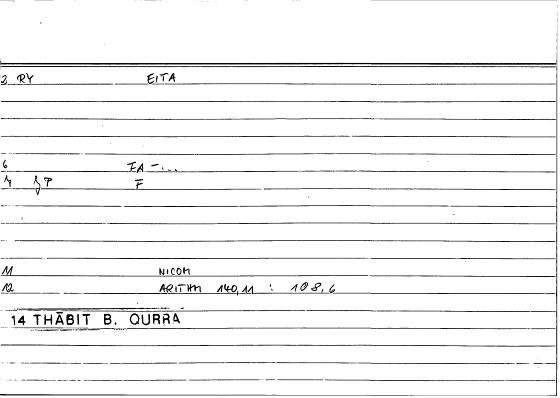 2 RY EITA
6 IA -...
F
11 NICOM
12 ARITHM 140,11 : 108,6
14 THĀBIT B. QURRA